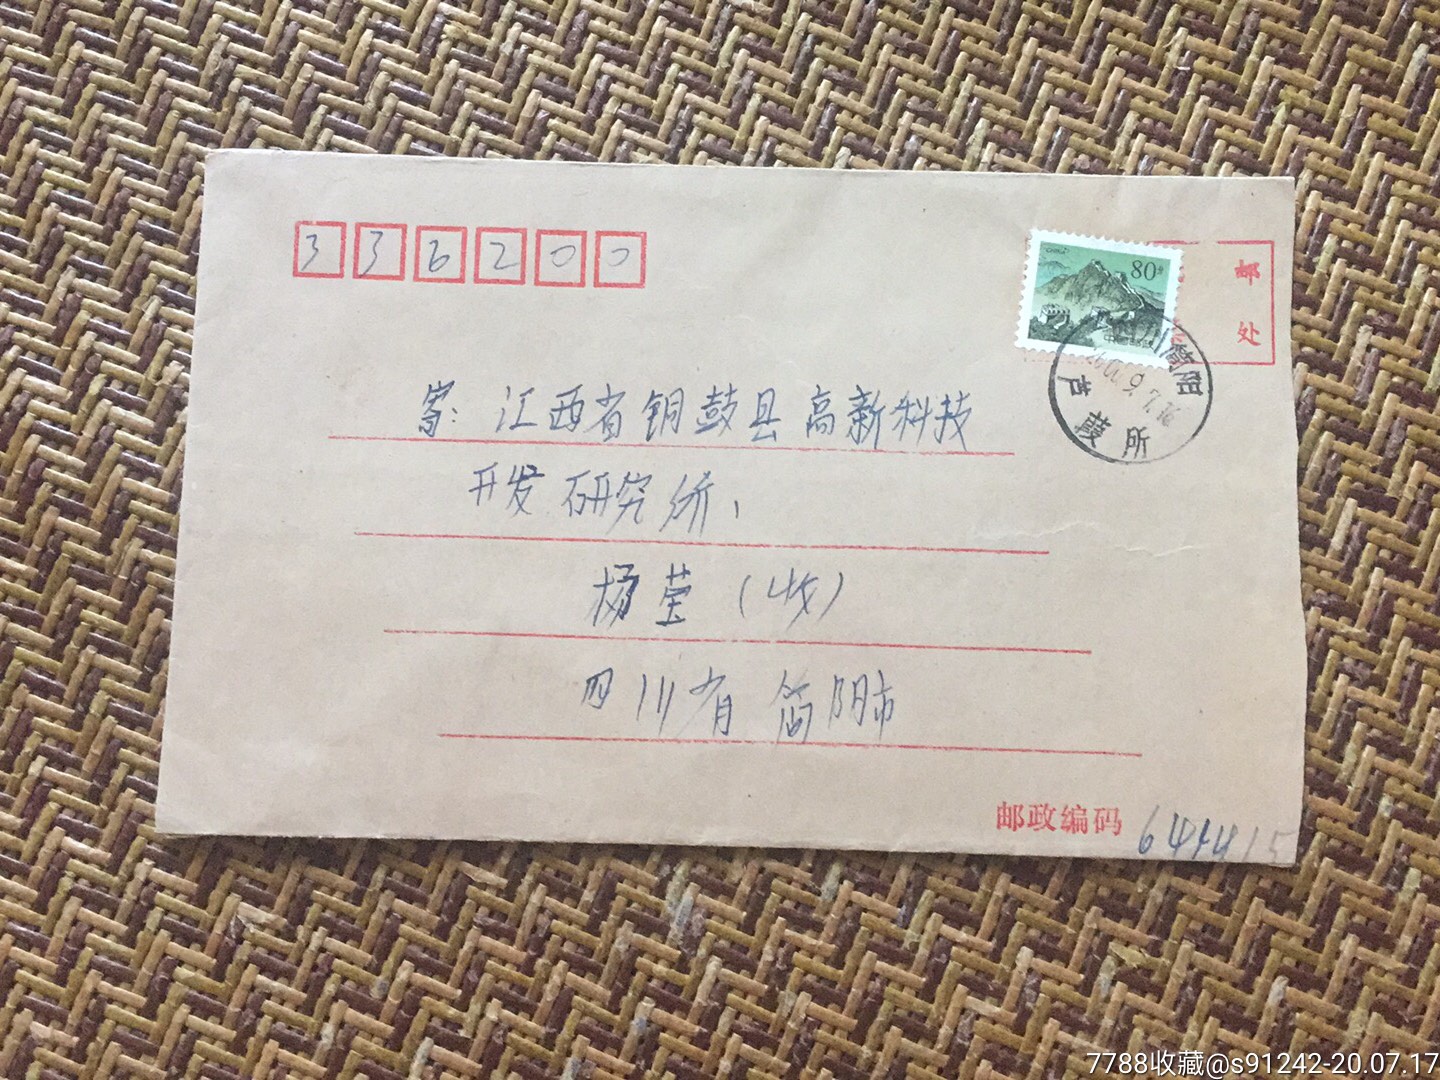 336200
80分
邮
处
四川简阳
芦葭所
寄: 江西省铜鼓县高新科技
开发研究所,
杨莹 (收)
四川省 简阳市
邮政编码 641415
7788收藏@s91242-20.07.17